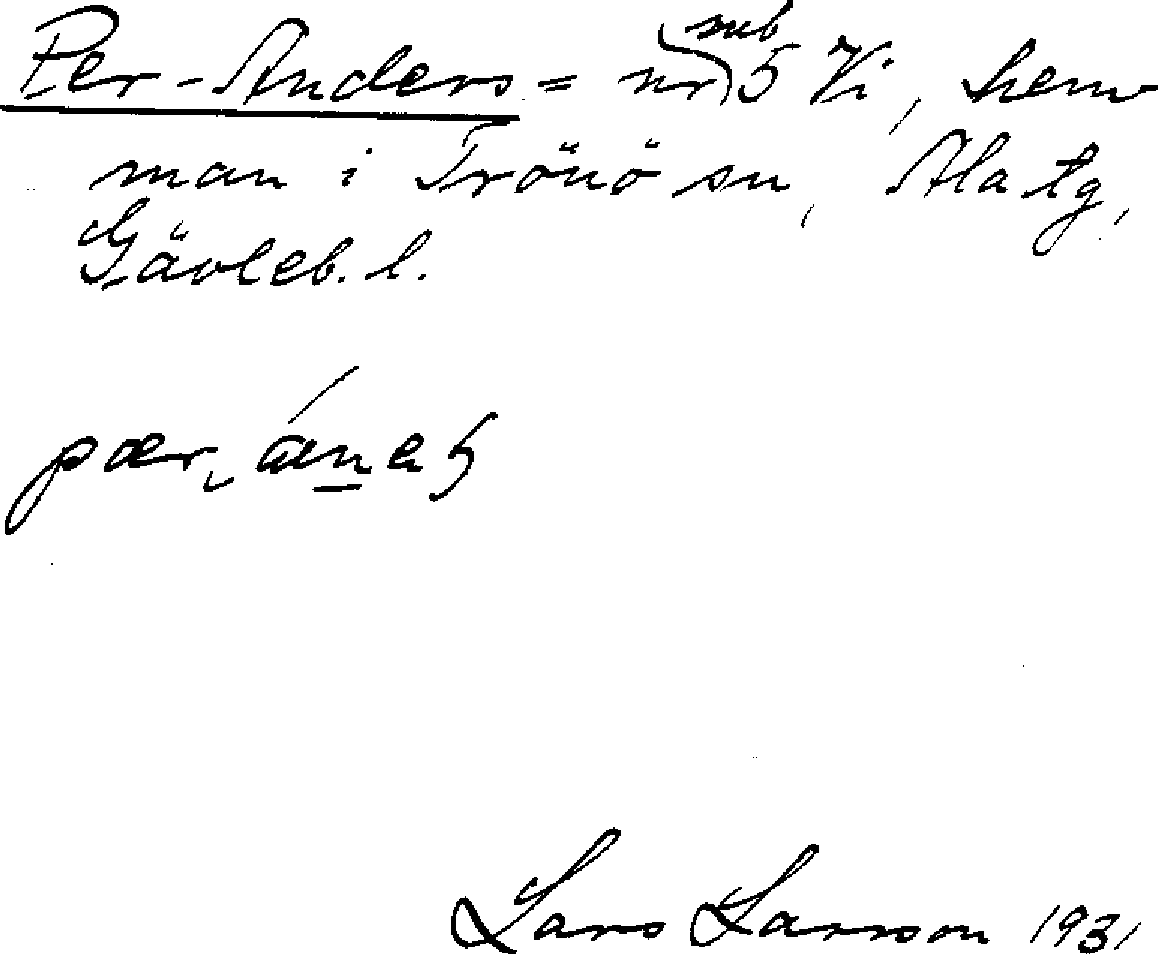 Per-Anders = nr sub 5 Vi, hem
man i Trönö sn, Ala tg,
Gävleb. l.
Lars Larsson 1931